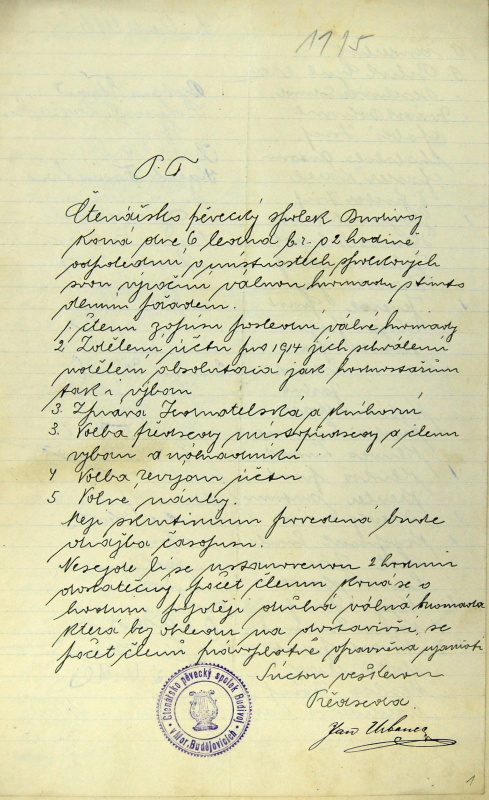 1915
P. T.
Čtenářsko pěvecký spolek Budivoj
koná dne 6 ledna b.r. o 2 hodině
odpolední v místnostech spolkových
svou výroční valnou hromadu s tímto
denním pořadem.
1. Čtení zápisu poslední válné hromady
2 Sdělení účtů pro 1914 jich schválení
udělení absolutoria jak hodnostářům
tak i výboru
3. Zpráva Jednatelská a knihovní
3. Volba předsedy místopředsedy a členů
výboru a náhradníků
4 Volba revisorů účtů
5 Volné návrhy.
skrutinium provedena bude
dražba časopisů.
Nesejde li se ustanovenou 2 hodinu
dostatečný počet členů koná se o
hodinu později druhá válná hromada
která bez ohledu na dostavivší se
počet členů právoplatně
S úctou veškerou
Předseda.
Jan Urbanec
Čtenářsko pěvecký spolek Budivoj
v Mor. Budějovicích
1